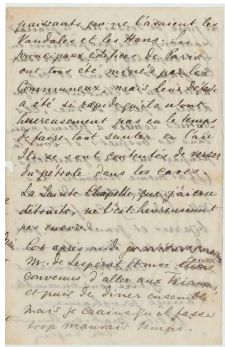 puissants que ne l'étaient les
Vandales et les Huns: les
principaux édifices de Paris
ont tous été minés par les
Communeux mais leur défaite
a été si rapide qu'ils n'ont
heureusement pas eu le temps
de faire tout sauter en l'air
Ils se sont contentés de verser
du pétrole dans les caves.
La Sainte Chapelle, que j'ai cru
détruite, ne l'est heureusement
pas encore.
tot après midi
M. de Lespérat et moi étions
convenus d'aller aux
et puis de diner ensemble
mais je crains qu'il fasse
trop mauvais temps.